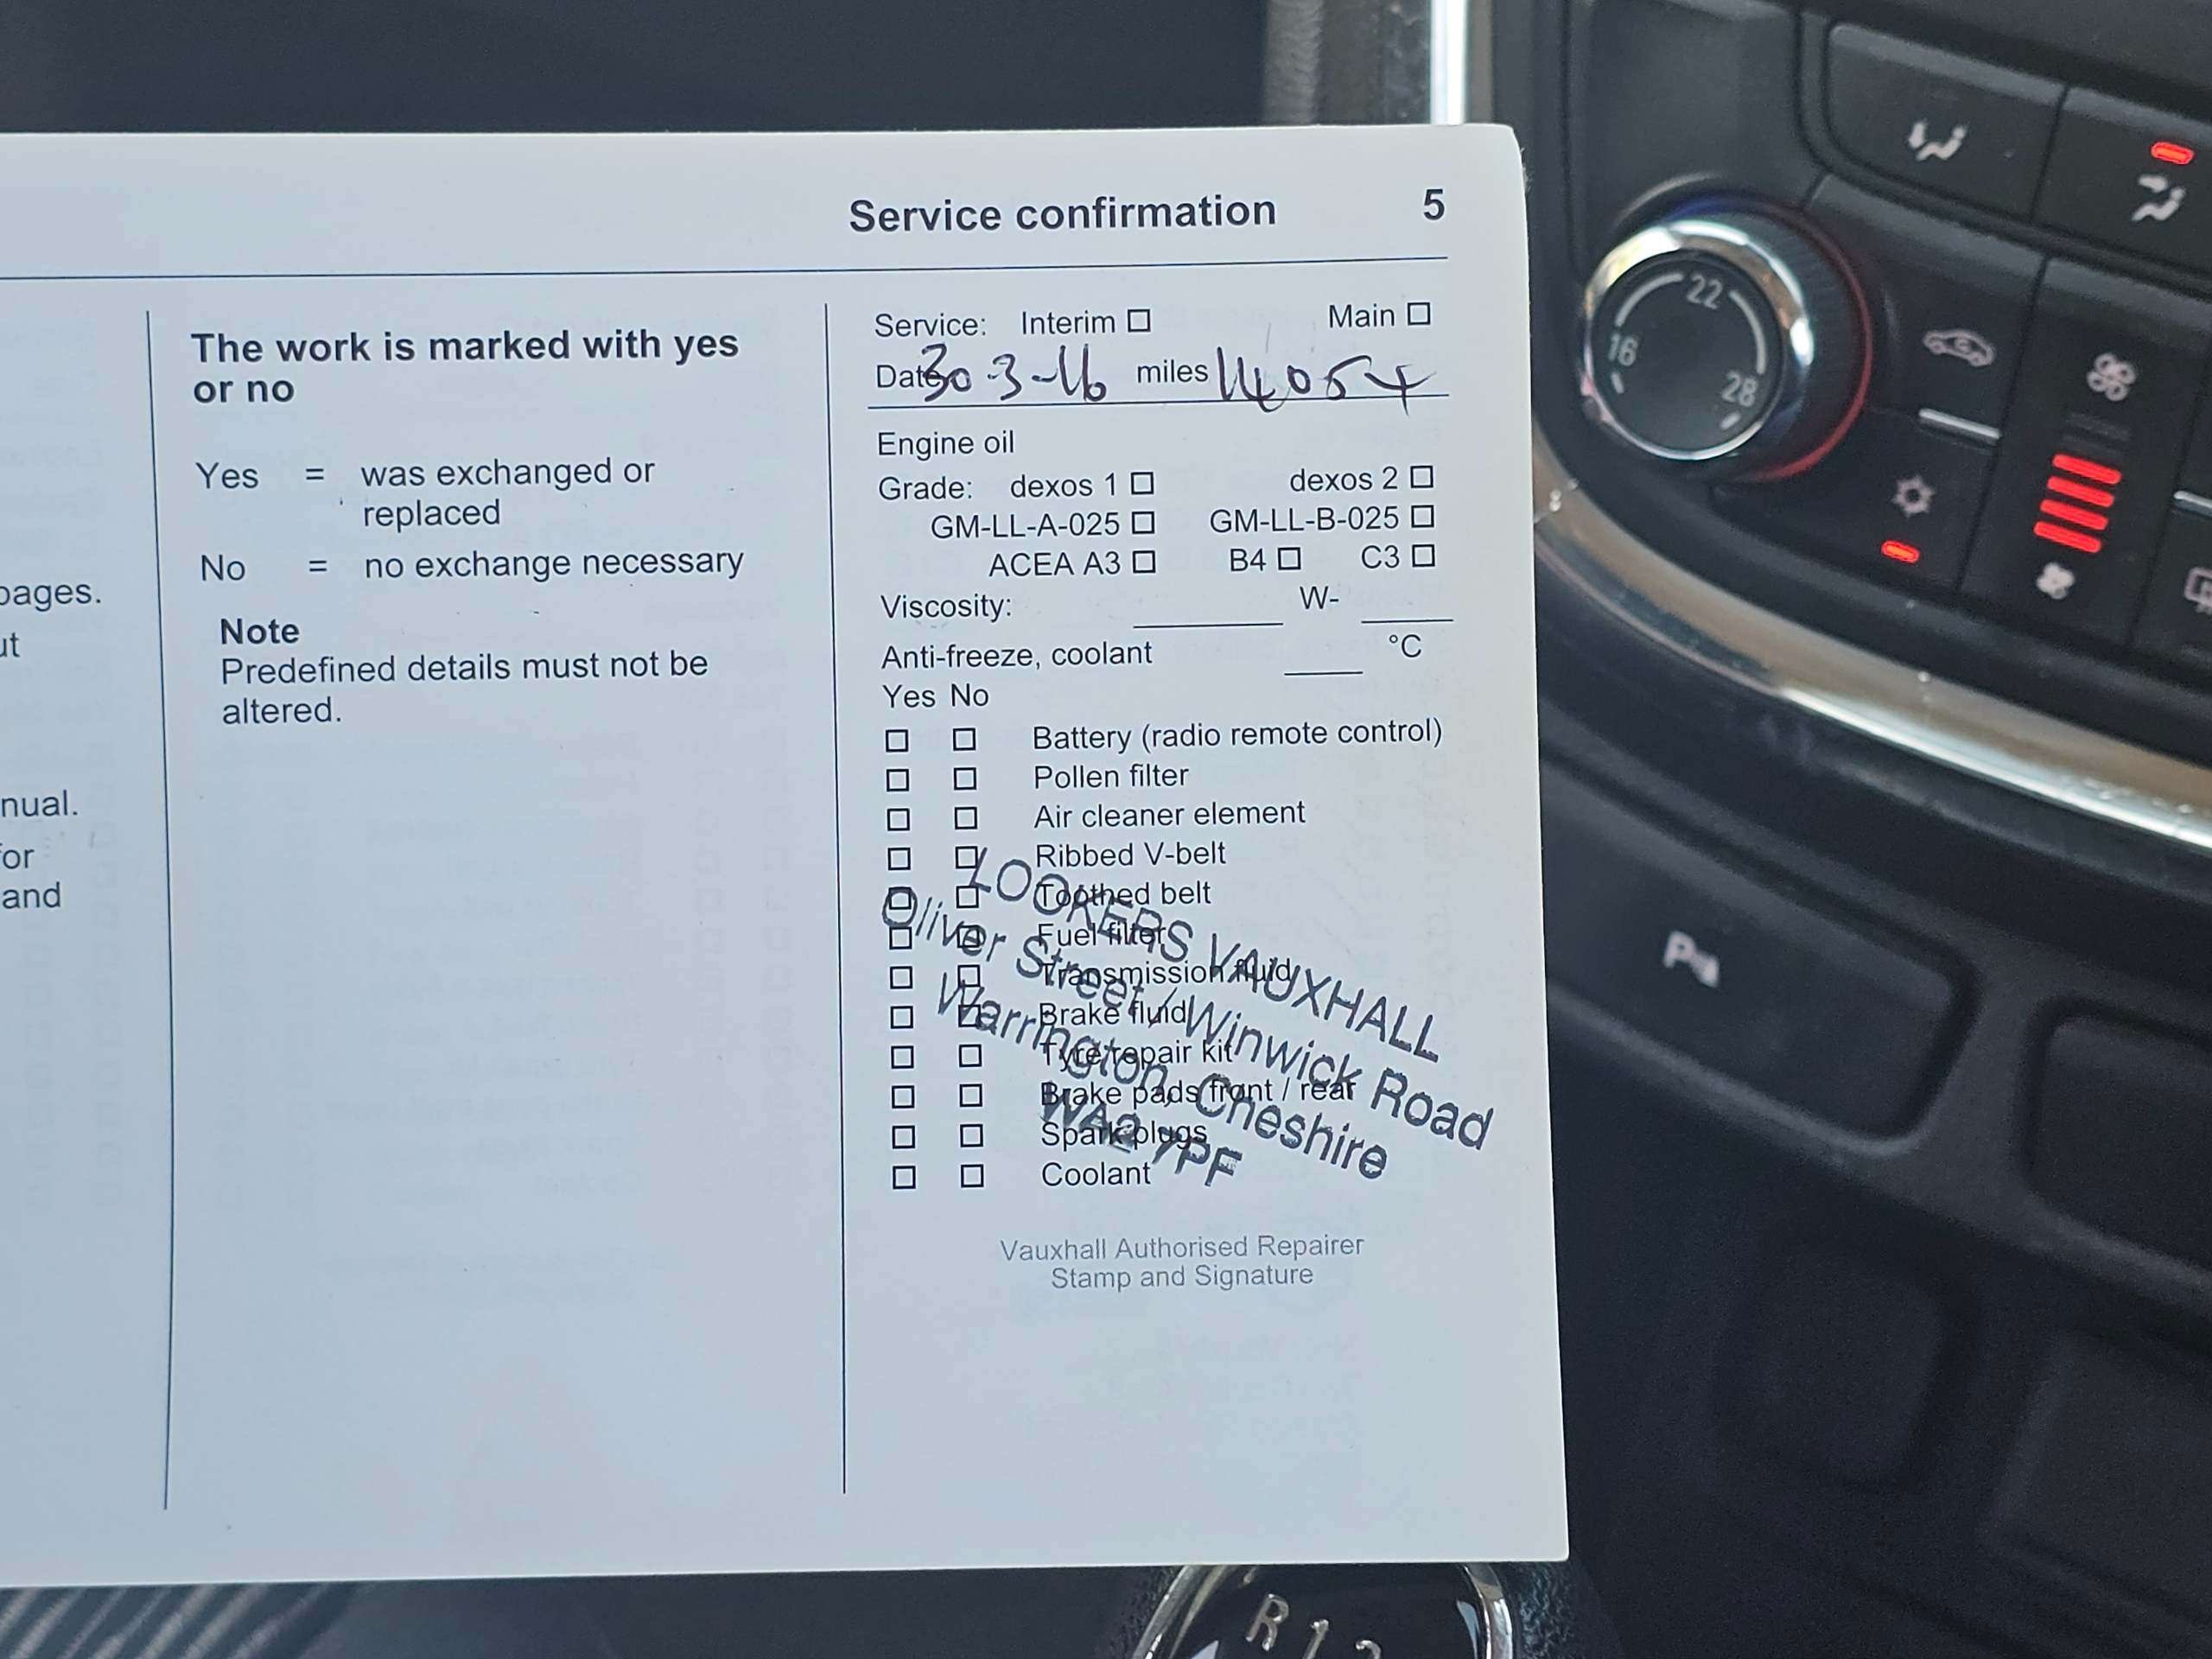 Service confirmation 5
pages.
ut
nual.
for
and
The work is marked with yes
or no
Yes = was exchanged or
replaced
No = no exchange necessary
Note
Predefined details must not be
altered.
Service: Interim ☐ Main ☐
Date 30-3-16 miles 14054
Engine oil
Grade: dexos 1 ☐ dexos 2 ☐
GM-LL-A-025 ☐ GM-LL-B-025 ☐
ACEA A3 ☐ B4 ☐ C3 ☐
Viscosity: W-
Anti-freeze, coolant °C
Yes No
☐ ☐ Battery (radio remote control)
☐ ☐ Pollen filter
☐ ☐ Air cleaner element
☐ ☐ Ribbed V-belt
☐ ☐ Toothed belt
☐ ☐ Fuel filter
☐ ☐ Transmission fluid
☐ ☐ Brake fluid
☐ ☐ Tyre repair kit
☐ ☐ Brake pads front / rear
☐ ☐ Spark plugs
☐ ☐ Coolant
LOOKERS VAUXHALL
Oliver Street / Winwick Road
Warrington, Cheshire
WA2 7PF
Vauxhall Authorised Repairer
Stamp and Signature
22
16
28
R 1 3